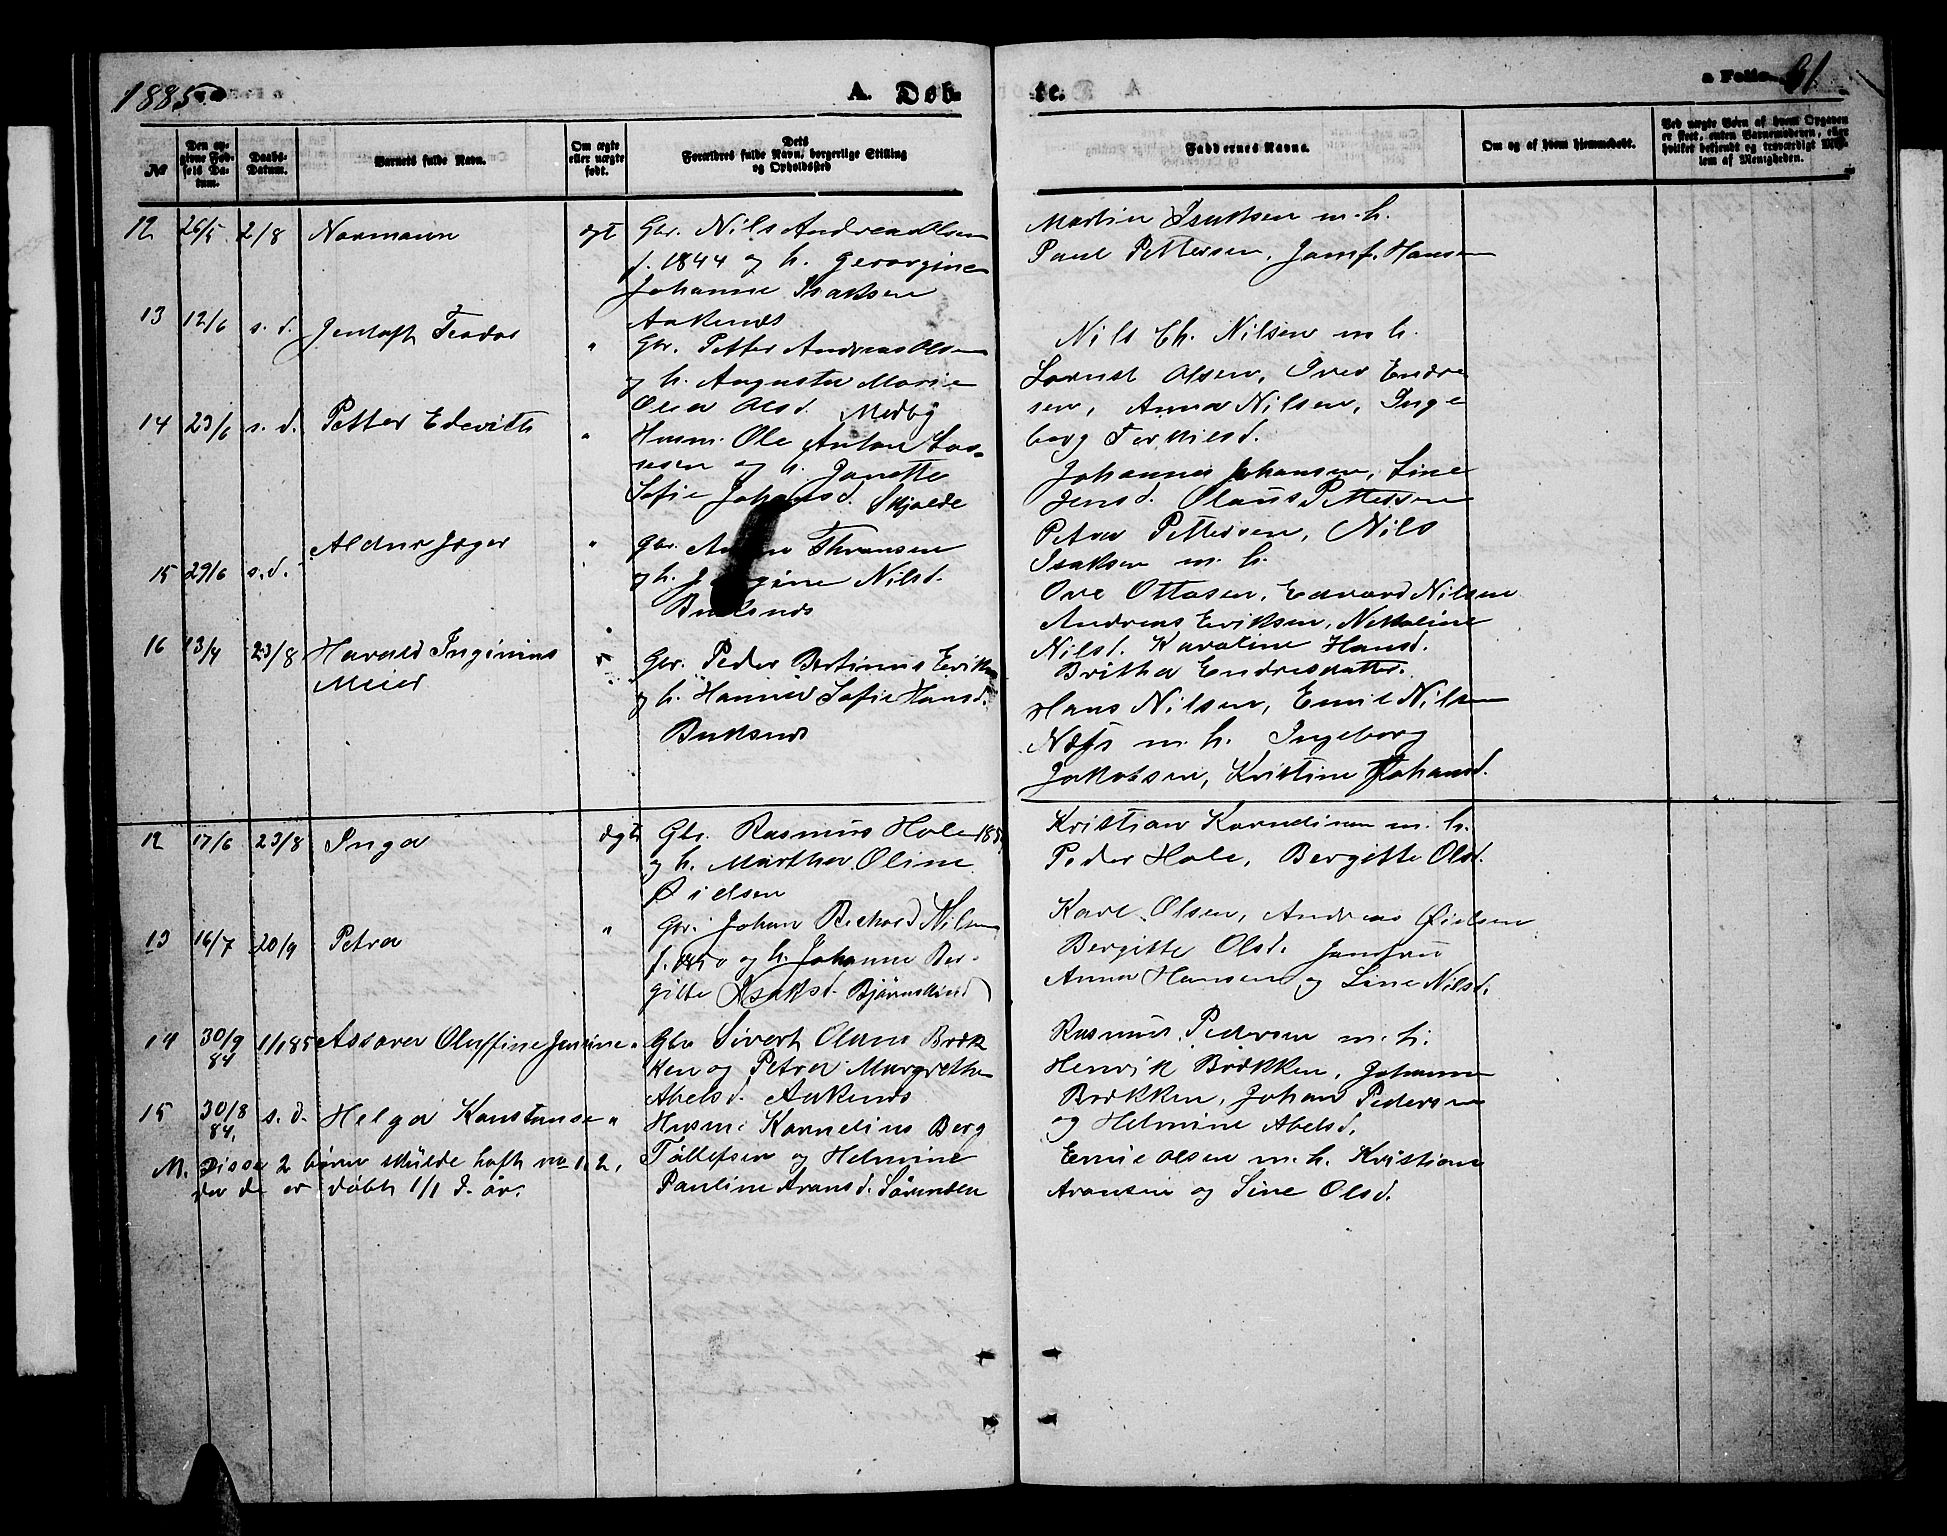 1885
A. Døb-
te.
a Folio 61.
№
Den op-
givne Fød-
sels Da-
tum.
Daabs-
Datum.
Barnets fulde Navn.
Om ægte
eller uægte
født.
Dets
Forældres fulde Navn, borgerlige Stilling
og Opholdssted
Faddernes Navne.
Om og af hvem hjemmedøbt.
Ved uægte Børn af hvem Opgaven
er skeet, enten Barnemoderen, eller
hvilket bekjendt og troværdigt Med-
lem af Menigheden.
12 26/5 2/8 Normann ægt Gbr. Nils Andreas Olsen
f. 1844 og h. Georgine
Johanne Isaksen
Aakenes
Martin Isaksen m. h.
Paul Pettersen, Jomf. Hansen
13 12/6 s. d. Jentoft Teodor " Gbr. Petter Andreas Olsen
og h. Augusta Marie
Olea Olsd. Medby
Nils Ch. Nilsen m h.
Lornst Olsen, Iver Endre
sen, Anna Nilsen, Inge
borg Terkilsd.
14 23/6 s. d. Petter Edevith " Husm. Ole Anton Las-
sesen og h. Janette
Sofie Johansd. Skjolde
Johannes Johansen, Line
Jensd. Olaus Pettersen
Petra Pettersen, Nils
Isaksen m. h.
15 29/6 s. d. Aldur Jøger " Gbr. Thronsen
og h. Nilsd.
Buksnes
Ove Ottosen, Edvard Nilsen
Andreas Eriksen, Nekoline
Nilsd. Karoline Hansd.
Britha Endresdatter.
16 13/4 23/8 Harald Inginius
Meier
" Gbr. Peder Bertinus Eriksen
og h. Hanna Sofie Hansd.
Buksnes
Hans Nilsen, Emil Nilsen
Næss m. h. Ingeborg
Jakobsen, Kristine Johansd.
12 17/6 23/8 Inga ægte Gbr. Rasmus Hole 185
og h. Martha Oline
Øielsen
Kristian Kornelinsen m. h.
Peder Hole, Bergitte Olsd.
13 16/7 20/9 Petra " Gbr. Johan Richard Nilsen
f. 1850 og h. Johanne Ber-
gitte Isaksd. Bjørnskind
Karl Olsen, Andreas Øielsen
Bergitte Olsd. Jomfru
Anna Hansen og Line Nilsd.
14 30/9
84 1/1 85 Assora Oluffine Jensine " Gbr Sivert Olaus Bræk
ken og Petra Margrethe
Abelsd. Aakenes
Rasmus Pedersen m. h.
Henrik Brækken, Johanna
Brækken, Johan Pedersen
og Helmine Abelsd.
15 30/8
84. s. d. Helga Konstanse " Husm. Kornelius Berg
Tollefsen og Helmine
Pauline Aransd. Sørensen
Emil Olsen m. h. Kristian
Aronsen og Line Olsd.
M. Disse 2 børn skulde haft no 1. 2,
da de er døbt 1/1 d. år.